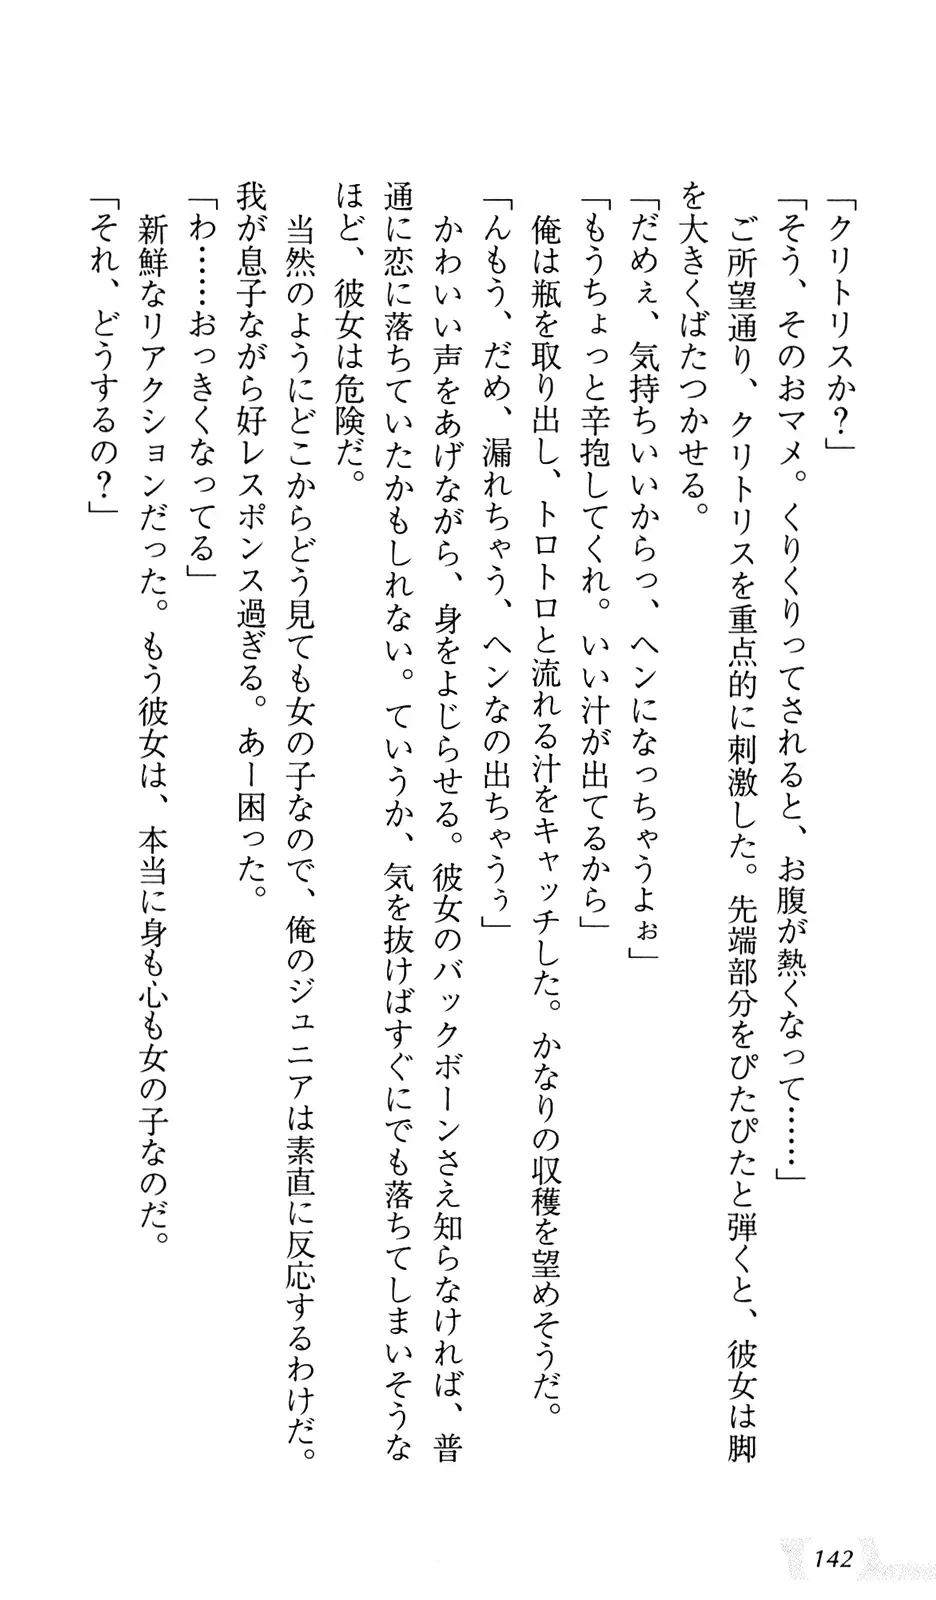 「クリトリスか？」
「そう、そのおマメ。くりくりってされると、お腹が熱くなって……」
ご所望通り、クリトリスを重点的に刺激した。先端部分をぴたぴたと弾くと、彼女は脚
を大きくばたつかせる。
「だめぇ、気持ちいいからっ、ヘンになっちゃうよぉ」
「もうちょっと辛抱してくれ。いい汁が出てるから」
俺は瓶を取り出し、トロトロと流れる汁をキャッチした。かなりの収穫を望めそうだ。
「んもう、だめ、漏れちゃう、ヘンなの出ちゃうぅ」
かわいい声をあげながら、身をよじらせる。彼女のバックボーンさえ知らなければ、普
通に恋に落ちていたかもしれない。ていうか、気を抜けばすぐにでも落ちてしまいそうな
ほど、彼女は危険だ。
当然のようにどこからどう見ても女の子なので、俺のジュニアは素直に反応するわけだ。
我が息子ながら好レスポンス過ぎる。あー困った。
「わ……おっきくなってる」
新鮮なリアクションだった。もう彼女は、本当に身も心も女の子なのだ。
「それ、どうするの？」
142